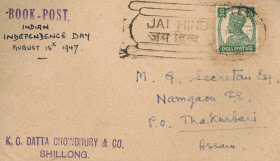 BOOK-POST.
INDIAN
INDEPENDENCE DAY
AUGUST 15th 1947.
JAI HIND
जय हिन्द
INDIA POSTAGE
M. G. Secretary Esq.
Namgaon T.E.
P.O. Thakurbari
Assam.
K. C. DATTA CHOWDHURY & CO.
SHILLONG.